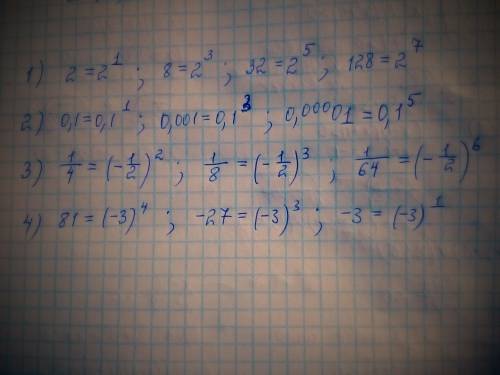 1) 2 = 2¹ ; 8 = 2³ ; 32 = 2⁵ ; 128 = 2⁷
2) 0,1 = 0,1¹ ; 0,001 = 0,1³ ; 0,00001 = 0,1⁵
3) 1/4 = (-1/2)² ; 1/8 = (-1/2)³ ; 1/64 = (-1/2)⁶
4) 81 = (-3)⁴ ; -27 = (-3)³ ; -3 = (-3)¹